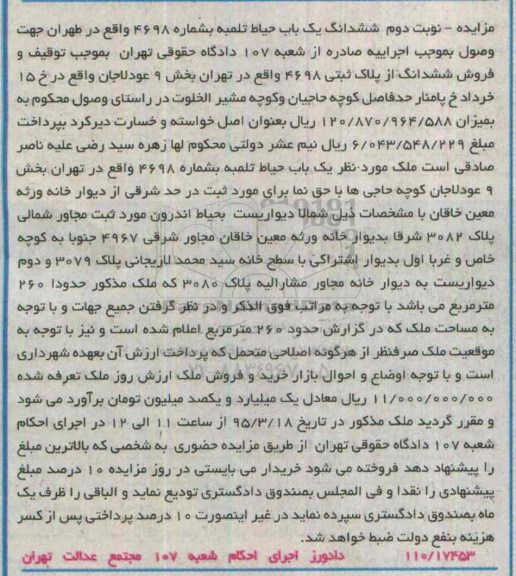 مزایده – نوبت دوم ششدانگ یک باب حیاط تلمبه بشماره ۴۶۹۸ واقع در طهران جهت
وصول بموجب اجراییه صادره از شعبه ۱۰۷ دادگاه حقوقی تهران بموجب توقیف و
فروش ششدانگ از پلاک ثبتی ۴۶۹۸ واقع در تهران بخش ۹ عودلاجان واقع در خ ۱۵
خرداد خ پامنار حدفاصل کوچه حاجیان وکوچه مشیر الخلوت در راستای وصول محکوم به
بمیزان ۱۲۰/۸۷۰/۹۶۴/۵۸۸ ریال بعنوان اصل خواسته و خسارت دیرکرد بپرداخت
مبلغ ۶/۰۴۳/۵۴۸/۲۲۹ ریال نیم عشر دولتی محکوم لها زهره سید رضی علیه ناصر
صادقی است ملک مورد نظر یک باب حیاط تلمبه بشماره ۴۶۹۸ واقع در تهران بخش
۹ عودلاجان کوچه حاجی ها با حق نما برای مورد ثبت در حد شرقی از دیوار خانه ورثه
معین خاقان با مشخصات ذیل شمالا دیواریست بحیاط اندرون مورد ثبت مجاور شمالی
پلاک ۳۰۸۲ شرقا بدیوار خانه ورثه معین خاقان مجاور شرقی ۴۹۶۷ جنوبا به کوچه
خاص و غربا اول بدیوار اشتراکی با سطح خانه سید محمد لاریجانی پلاک ۳۰۷۹ و دوم
دیواریست به دیوار خانه مجاور مشارالیه پلاک ۳۰۸۰ که ملک مذکور حدودا ۲۶۰
مترمربع می باشد با توجه به مراتب فوق الذکر و در نظر گرفتن جمیع جهات و با توجه
به مساحت ملک که در گزارش حدود ۲۶۰ مترمربع اعلام شده است و نیز با توجه به
موقعیت ملک صرفنظر از هرگونه اصلاحی متحمل که پرداخت ارزش آن بعهده شهرداری
است و با توجه اوضاع و احوال بازار خرید و فروش ملک ارزش روز ملک تعرفه شده
۱۱/۰۰۰/۰۰۰/۰۰۰ ریال معادل یک میلیارد و یکصد میلیون تومان برآورد می شود
و مقرر گردید ملک مذکور در تاریخ ۹۵/۳/۱۸ از ساعت ۱۱ الی ۱۲ در اجرای احکام
شعبه ۱۰۷ دادگاه حقوقی تهران از طریق مزایده حضوری به شخصی که بالاترین مبلغ
را پیشنهاد دهد فروخته می شود خریدار می بایستی در روز مزایده ۱۰ درصد مبلغ
پیشنهادی را نقدا و فی المجلس بصندوق دادگستری تودیع نماید و الباقی را ظرف یک
ماه بصندوق دادگستری سپرده نماید در غیر اینصورت ۱۰ درصد پرداختی پس از کسر
هزینه بنفع دولت ضبط خواهد شد.
۱۱۰/۱۷۴۵۳ دادورز اجرای احکام شعبه ۱۰۷ مجتمع عدالت تهران